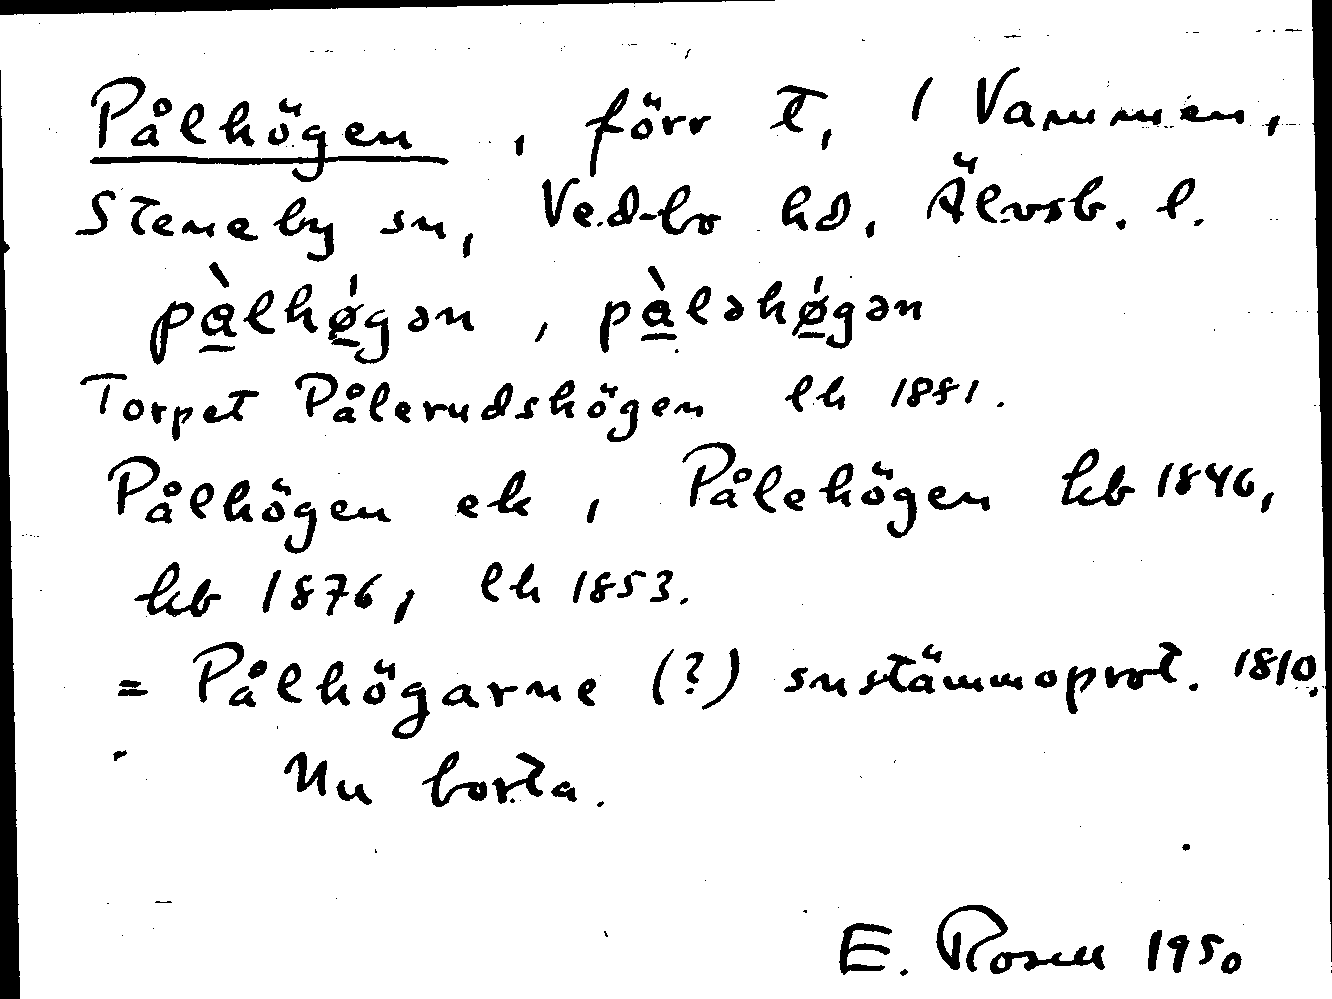 Pålhögen, förr t, / Vammen,
Steneby sn, Vedbo hd, Älvsb. l.
pàlhǿgən, pàləhǿgən
Torpet Pålerudshögen lh 1881.
Pålhögen ek, Pålehögen kb 1846,
kb 1876, lh 1853.
= Pålhögarne (?) snstämmoprot. 1810.
Nu borta.
E. Rosell 1950